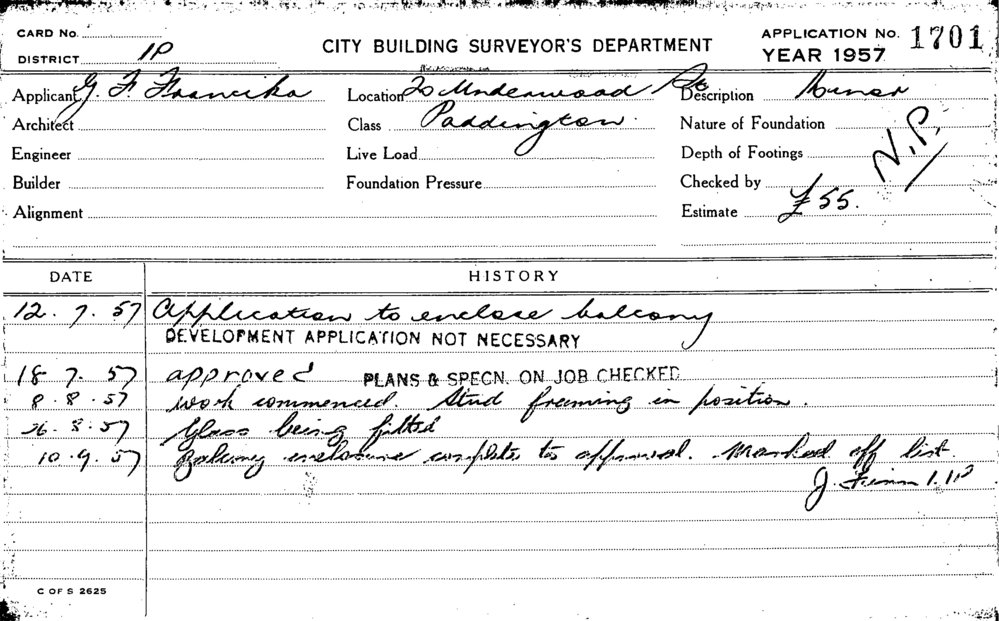 CARD No.
DISTRICT 1P
CITY BUILDING SURVEYOR'S DEPARTMENT
APPLICATION No. 1701
YEAR 1957
Applicant G. F. Francika Location 20 Underwood St Description Minor
Architect Class Paddington. Nature of Foundation
Engineer Live Load Depth of Footings N.P.
Builder Foundation Pressure Checked by
Alignment Estimate £55.
DATE HISTORY
12.7.57 Application to enclose balcony
DEVELOPMENT APPLICATION NOT NECESSARY
18 7.57 approved PLANS & SPECN. ON JOB CHECKED
8.8.57 work commenced. Stud framing in position.
26.8.57 Glass being fitted
10.9.57 Balcony enclosure complete to approval. Marked off list.
J. Finn 1.1P
C OF S 2625